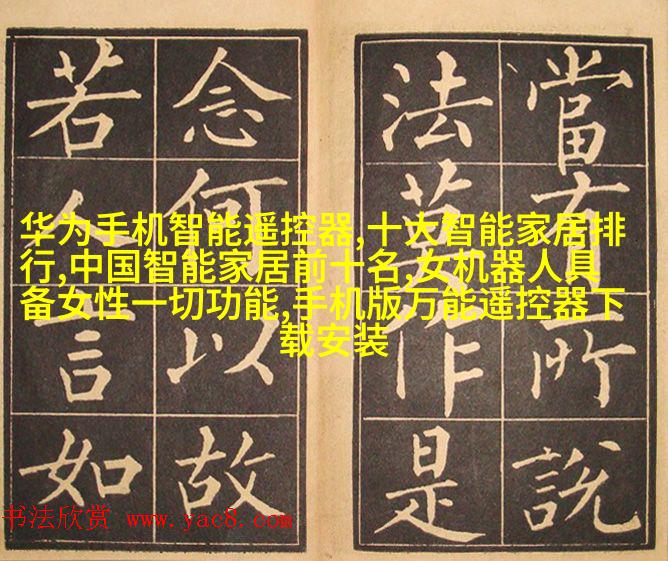 當有所說
法莫作是
念何以故
若人言如
华为手机智能遥控器,十大智能家居排
行,中国智能家居前十名,女机器人具
备女性一切功能,手机版万能遥控器下
载安装
书法欣赏 www.yac8.com